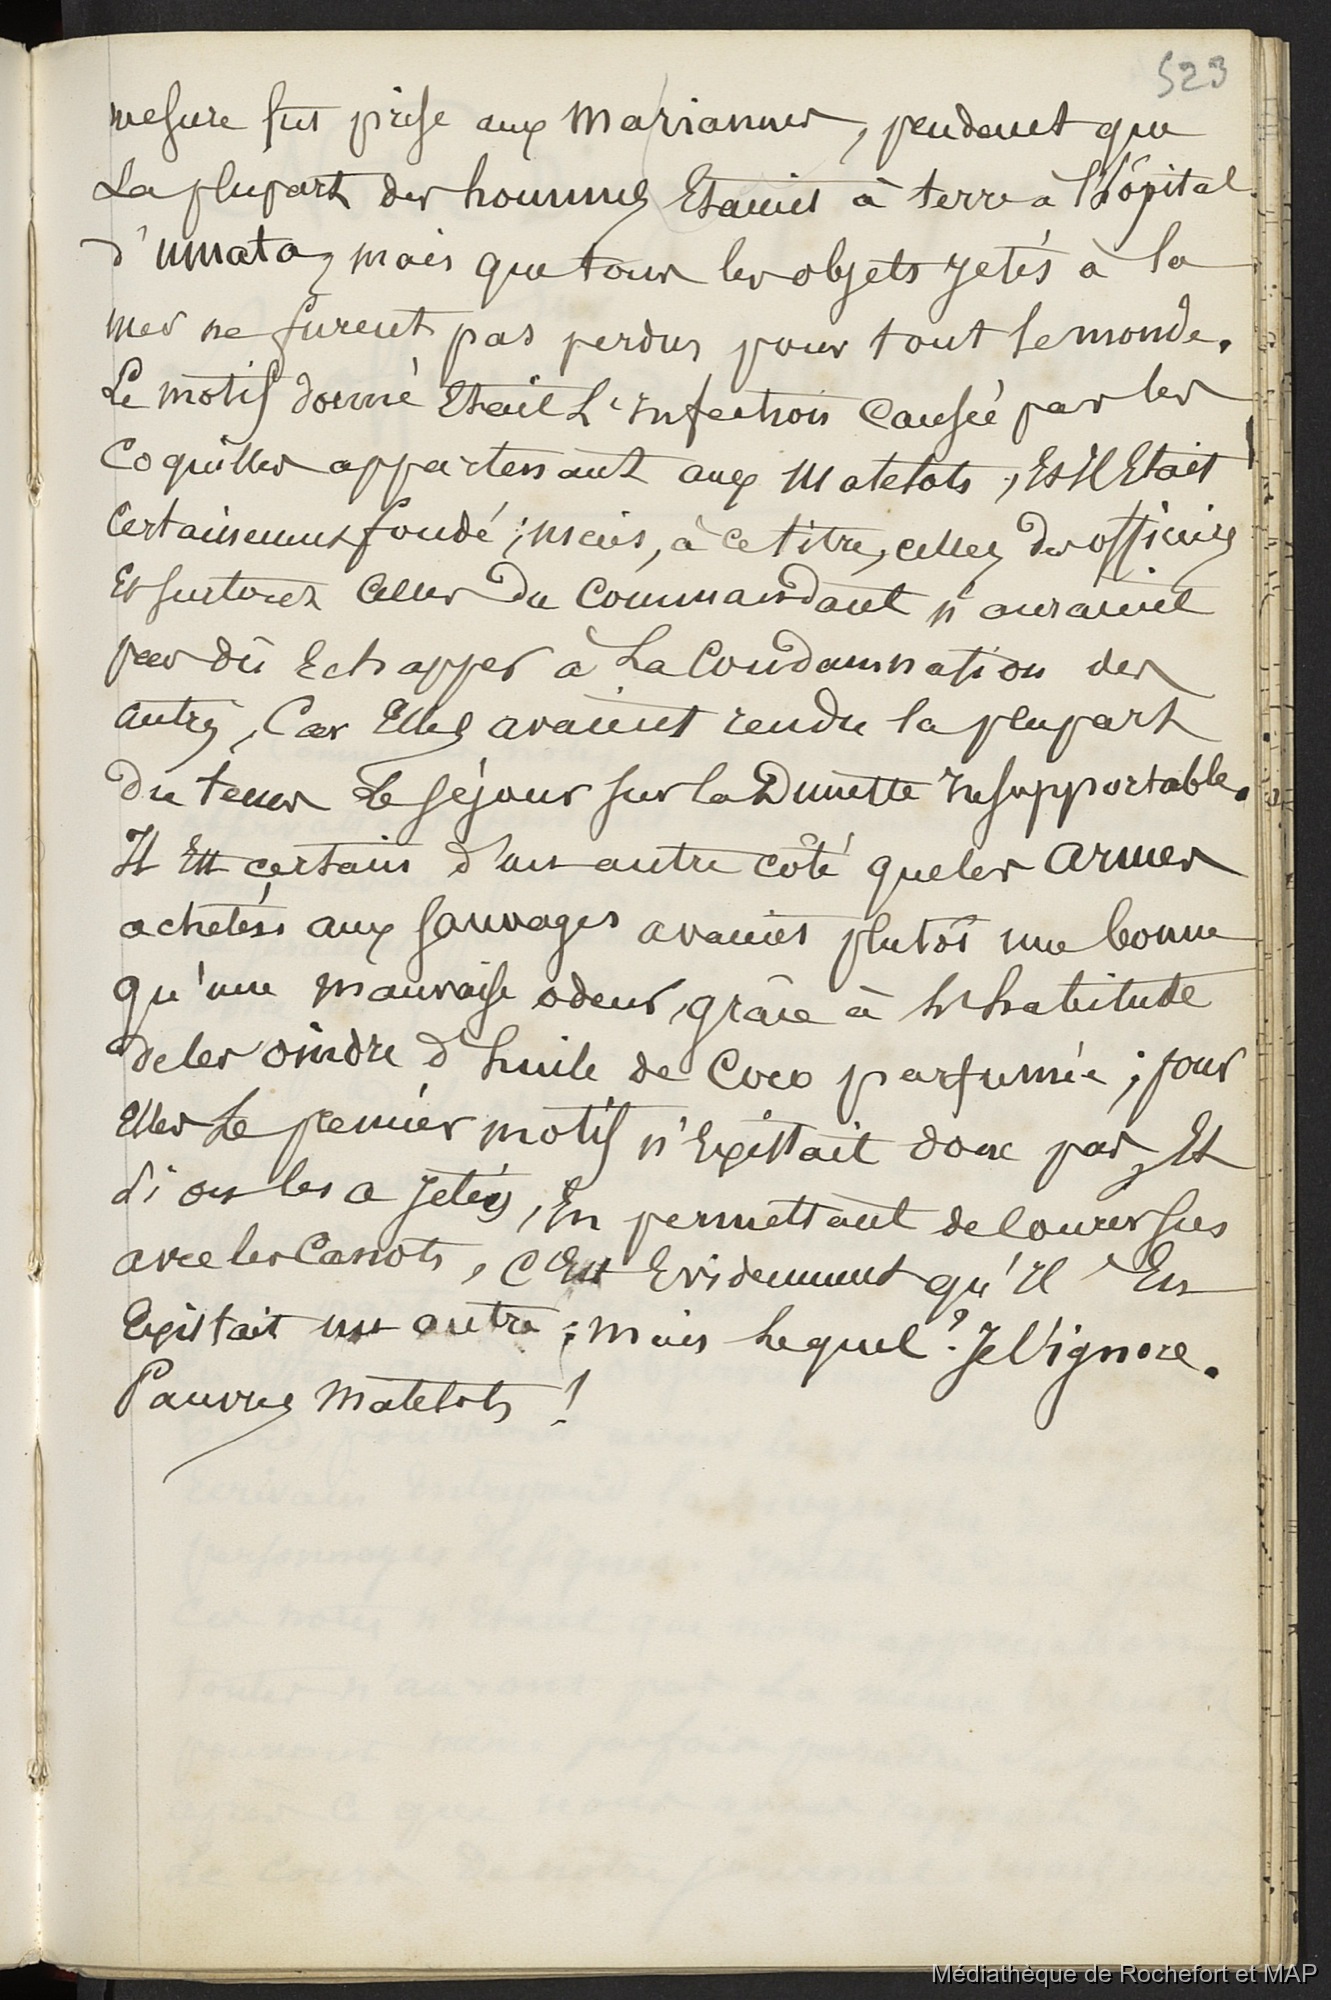 523
mesure fut prise aux Mariannes, pendant que
La plupart des hommes Etaient à terre à l'hôpital
d'umata, mais que tous les objets jetés à la
mer ne furent pas perdus pour tout le monde.
Le motif donné Etait L'infection Causée par les
Coquilles appartenant aux Matelots, Et Il Etait
Certainement fondé; mais, à ce titre, celles des officiers
Et surtout Celles du Commandant n'auraient
pas dû Echapper à La Condamnation des
autres, Car Elles avaient rendu la plupart
du tems Le séjour sur la Dunette Insupportable.
Il Est certain d'un autre côté que les armes
achetées aux sauvages avaient plutôt une bonne
qu'une mauvaise odeur, grâce à l'habitude
de les oindre d'huile de Coco parfumée; pour
Elles Le premier motif n'Existait donc pas, Et
si on les a jetés, En permettant de courir sus
avec les Canots, c'Est Evidemment qu'Il En
Existait un autre; mais lequel? Je l'ignore.
Pauvres Matelots!
Médiathèque de Rochefort et MAP